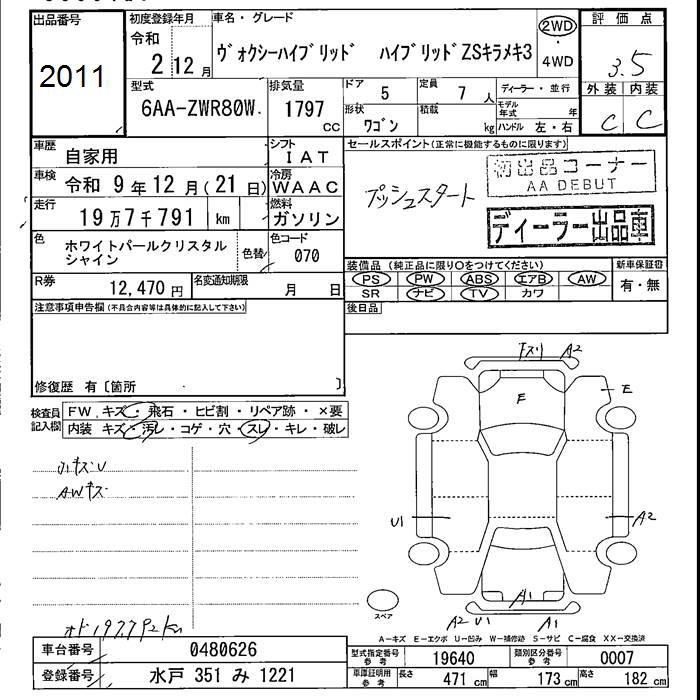 出品番号
2011
初度登録年月
令和
2 12 月
車名・グレード
ヴォクシーハイブリッド ハイブリッドZSキラメキ3
2WD
・
4WD
評価点
3.5
外装 内装
C C
型式
6AA-ZWR80W
排気量
1797
cc
ドア
5
定員
7 人
ディーラー・並行
形状
ワゴン
積載
kg
モデル年式 年
ハンドル 左・右
車歴
自家用
シフト
IAT
車検
令和 9 年 12 月 (21 日)
冷房
WAAC
走行
19 万 7 千 791 km
燃料
ガソリン
色
ホワイトパールクリスタル
シャイン
色替
色コード
070
R券
12,470 円
名変通知期限
月 日
セールスポイント(正常に機能するものに限ります)
プッシュスタート
初出品コーナー
AA DEBUT
ディーラー出品車
装備品 (純正品に限り○をつけてください)
PS PW ABS エアB AW
SR ナビ TV カワ
新車保証書
有・無
後日品
注意事項申告欄(不具合内容等は具体的に記入して下さい)
修復歴 有〔箇所 〕
検査員
記入欄
FW キズ・飛石・ヒビ割・リペア跡・×要
内装 キズ・汚レ・コゲ・穴・スレ・キレ・破レ
AWキズ
A2
F
E
U1
A2
A1
A2 U1
A1
スペア
オド197792km
A-キズ E-エクボ U-凹み W-補修跡 S-サビ C-腐食 XX-交換済
車台番号
0480626
登録番号
水戸 351 み 1221
型式指定番号
参考
19640
類別区分番号
参考
0007
車庫証明用
参考
長さ
471 cm
幅
173 cm
高さ
182 cm